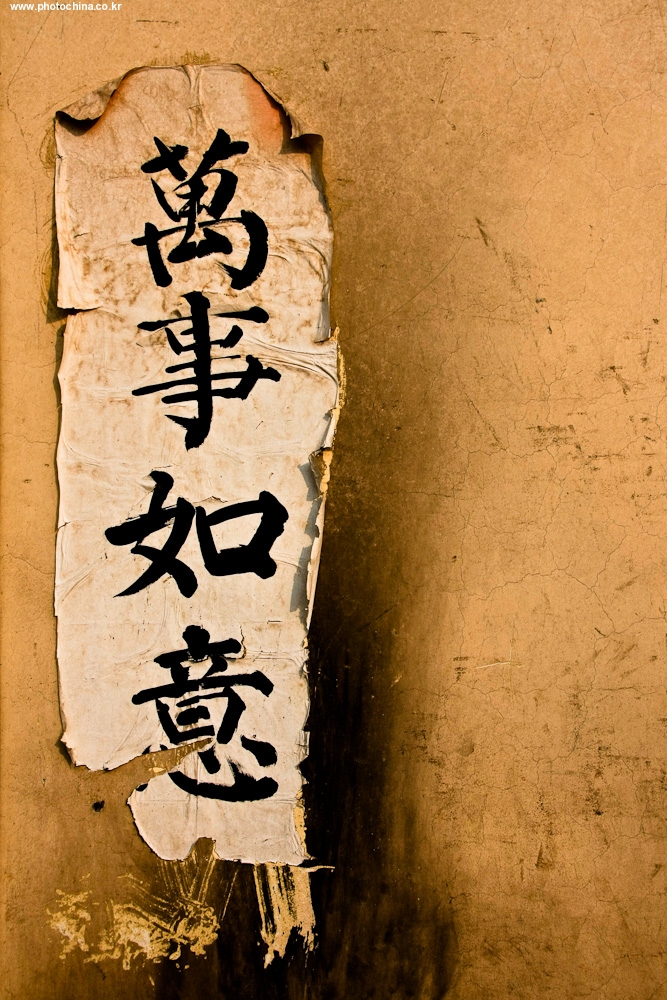 www.photochina.co.kr
萬事如意